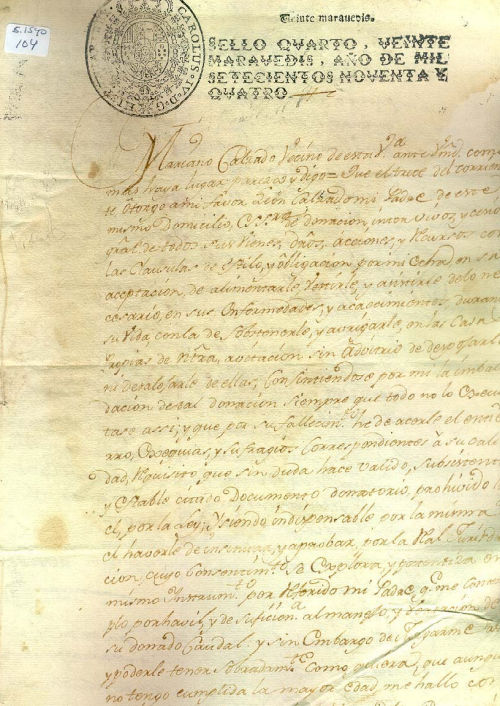 S.1540
104
CAROLUS IV D G
Veinte maravedis.
SELLO QVARTO, VEINTE
MARAVEDIS, AÑO DE MIL
SETECIENTOS NOVENTA Y
QVATRO
Mariano Calzado Vecino de esta Va ante Vmd. como
mas haya lugar parezco y digo = Que el trece del corrien
te, otorgo a mi favor Calzado mi Padre de este
mismo Domicilio, de donacion, inter vivos, y
gral de todos sus bienes, dros, acciones, y Recursos con
las Clausulas de estilo, y obligacion por mi echa en su
aceptacion, de alimentarle, vestirle, y asistirle de lo ne
cesario, en sus enfermedades, y acaecimientos durante
su vida, con la de sobstenerle, y abrigarle, en las Casas
propias de sin Advitrio de
ni de ellas, Consintiendose por mi la
dacion de tal donacion siempre que todo no lo Execu
tase assi; y que por su fallecimto he de acerle el entie
rro, Exequias, y sufragios Correspondientes à su cali
dad, Requisito, que sin duda hace valido, subsistente
y estable Documento donatorio, prohivido
el, por la ley; y siendo indispensable por la misma
el haverse de insinuar, y aprobar, por la Ral Jurisdi
cion, cuyo Consentimto se Explora, y en
mismo Instrumto por Referido mi Padre, qe me
plo por havil, y de suficiena al manejo y de
su donado Caudal: y sin Embargo de
y poderle tener sobradamte Como quiera, que aunque
no tengo cumplida la mayor edad, me hallo